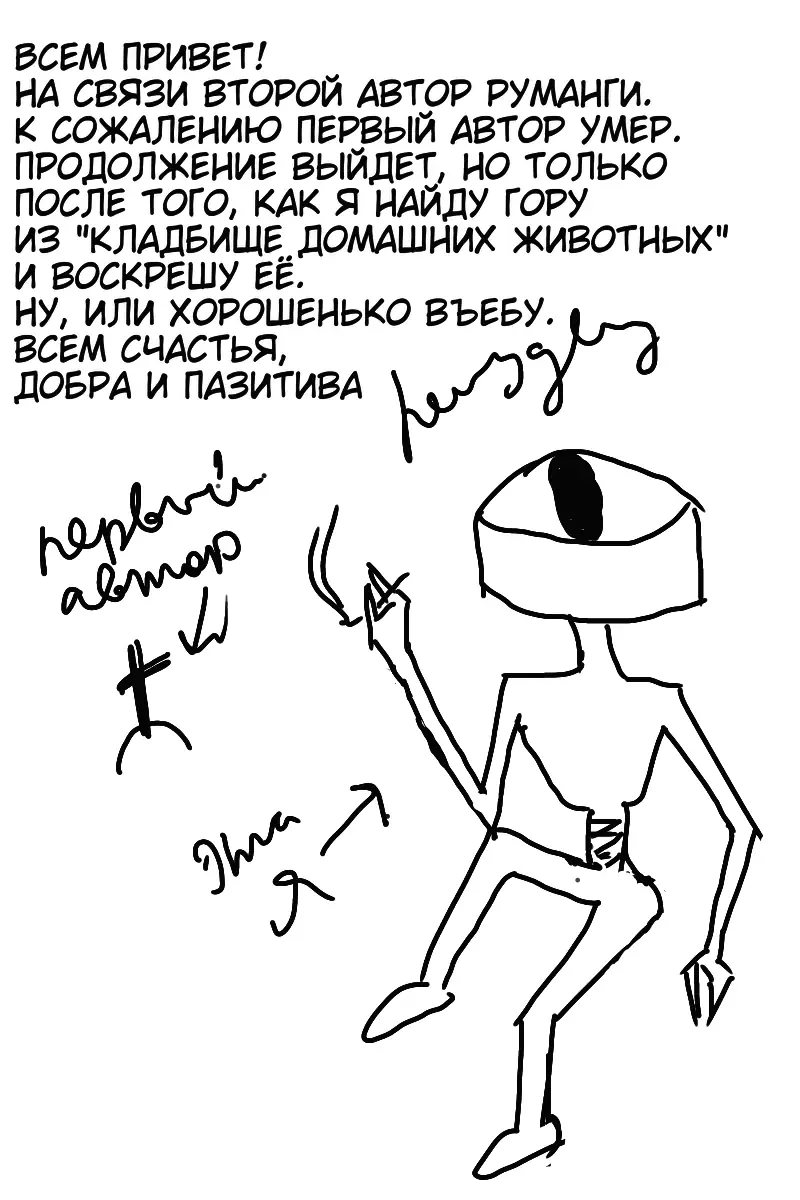 ВСЕМ ПРИВЕТ!
НА СВЯЗИ ВТОРОЙ АВТОР РУМАНГИ.
К СОЖАЛЕНИЮ ПЕРВЫЙ АВТОР УМЕР.
ПРОДОЛЖЕНИЕ ВЫЙДЕТ, НО ТОЛЬКО
ПОСЛЕ ТОГО, КАК Я НАЙДУ ГОРУ
ИЗ "КЛАДБИЩЕ ДОМАШНИХ ЖИВОТНЫХ"
И ВОСКРЕШУ ЕЁ.
НУ, ИЛИ ХОРОШЕНЬКО ВЪЕБУ.
ВСЕМ СЧАСТЬЯ,
ДОБРА И ПАЗИТИВА
первый
автор
Эта
я